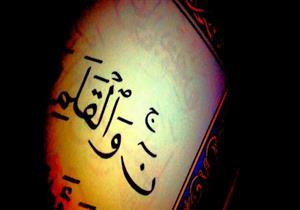 نٓ ۚ وَٱلْقَلَمِ